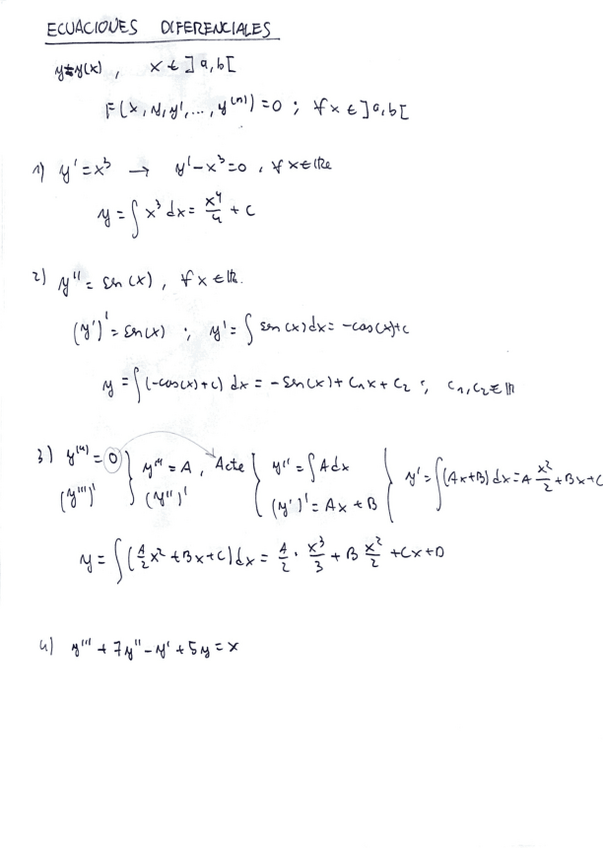 ECUACIONES DIFERENCIALES
y=y(x), x ∈ ]a,b[
F(x, y, y', ..., y^(n)) = 0 ; ∀x ∈ ]a,b[
1) y' = x³ → y' - x³ = 0, ∀x ∈ ℝ
y = ∫ x³ dx = x⁴/4 + C
2) y'' = sen(x), ∀x ∈ ℝ.
(y')' = sen(x) ; y' = ∫ sen(x) dx = -cos(x)+c
y = ∫(-cos(x)+c) dx = -sen(x) + C₁x + C₂ ; C₁, C₂ ∈ ℝ
3) y^(4) = 0 } y''' = A, Acte { y'' = ∫ A dx { y' = ∫(Ax+B) dx = A x²/2 + Bx + C
(y''')' } (y'')' { (y')' = Ax + B
y = ∫(A/2 x² + Bx + C) dx = A/2 · x³/3 + B x²/2 + Cx + D
4) y''' + 7y'' - y' + 5y = x